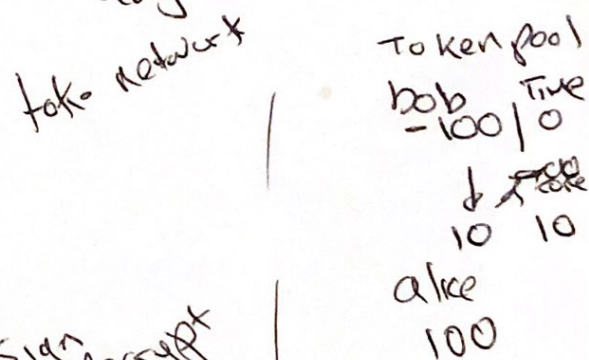 toke network
Token pool
bob Time
-100 | 0
10 10
alice
100
sign